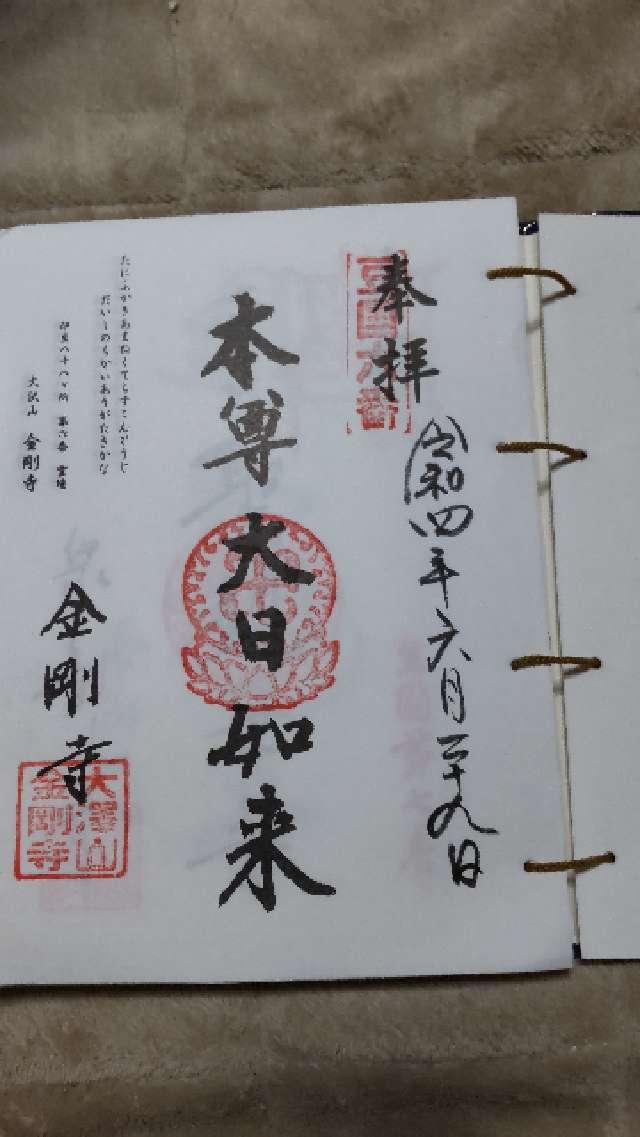 奉拝
豆国六番
令和四年六月二十九日
本尊 大日如来
金剛寺
大澤山
金剛寺
たにふかきあまねくてらすこんがうじ
だいしのちかいありがたきかな
伊豆八十八ヶ所 第六番 霊場
大沢山 金剛寺